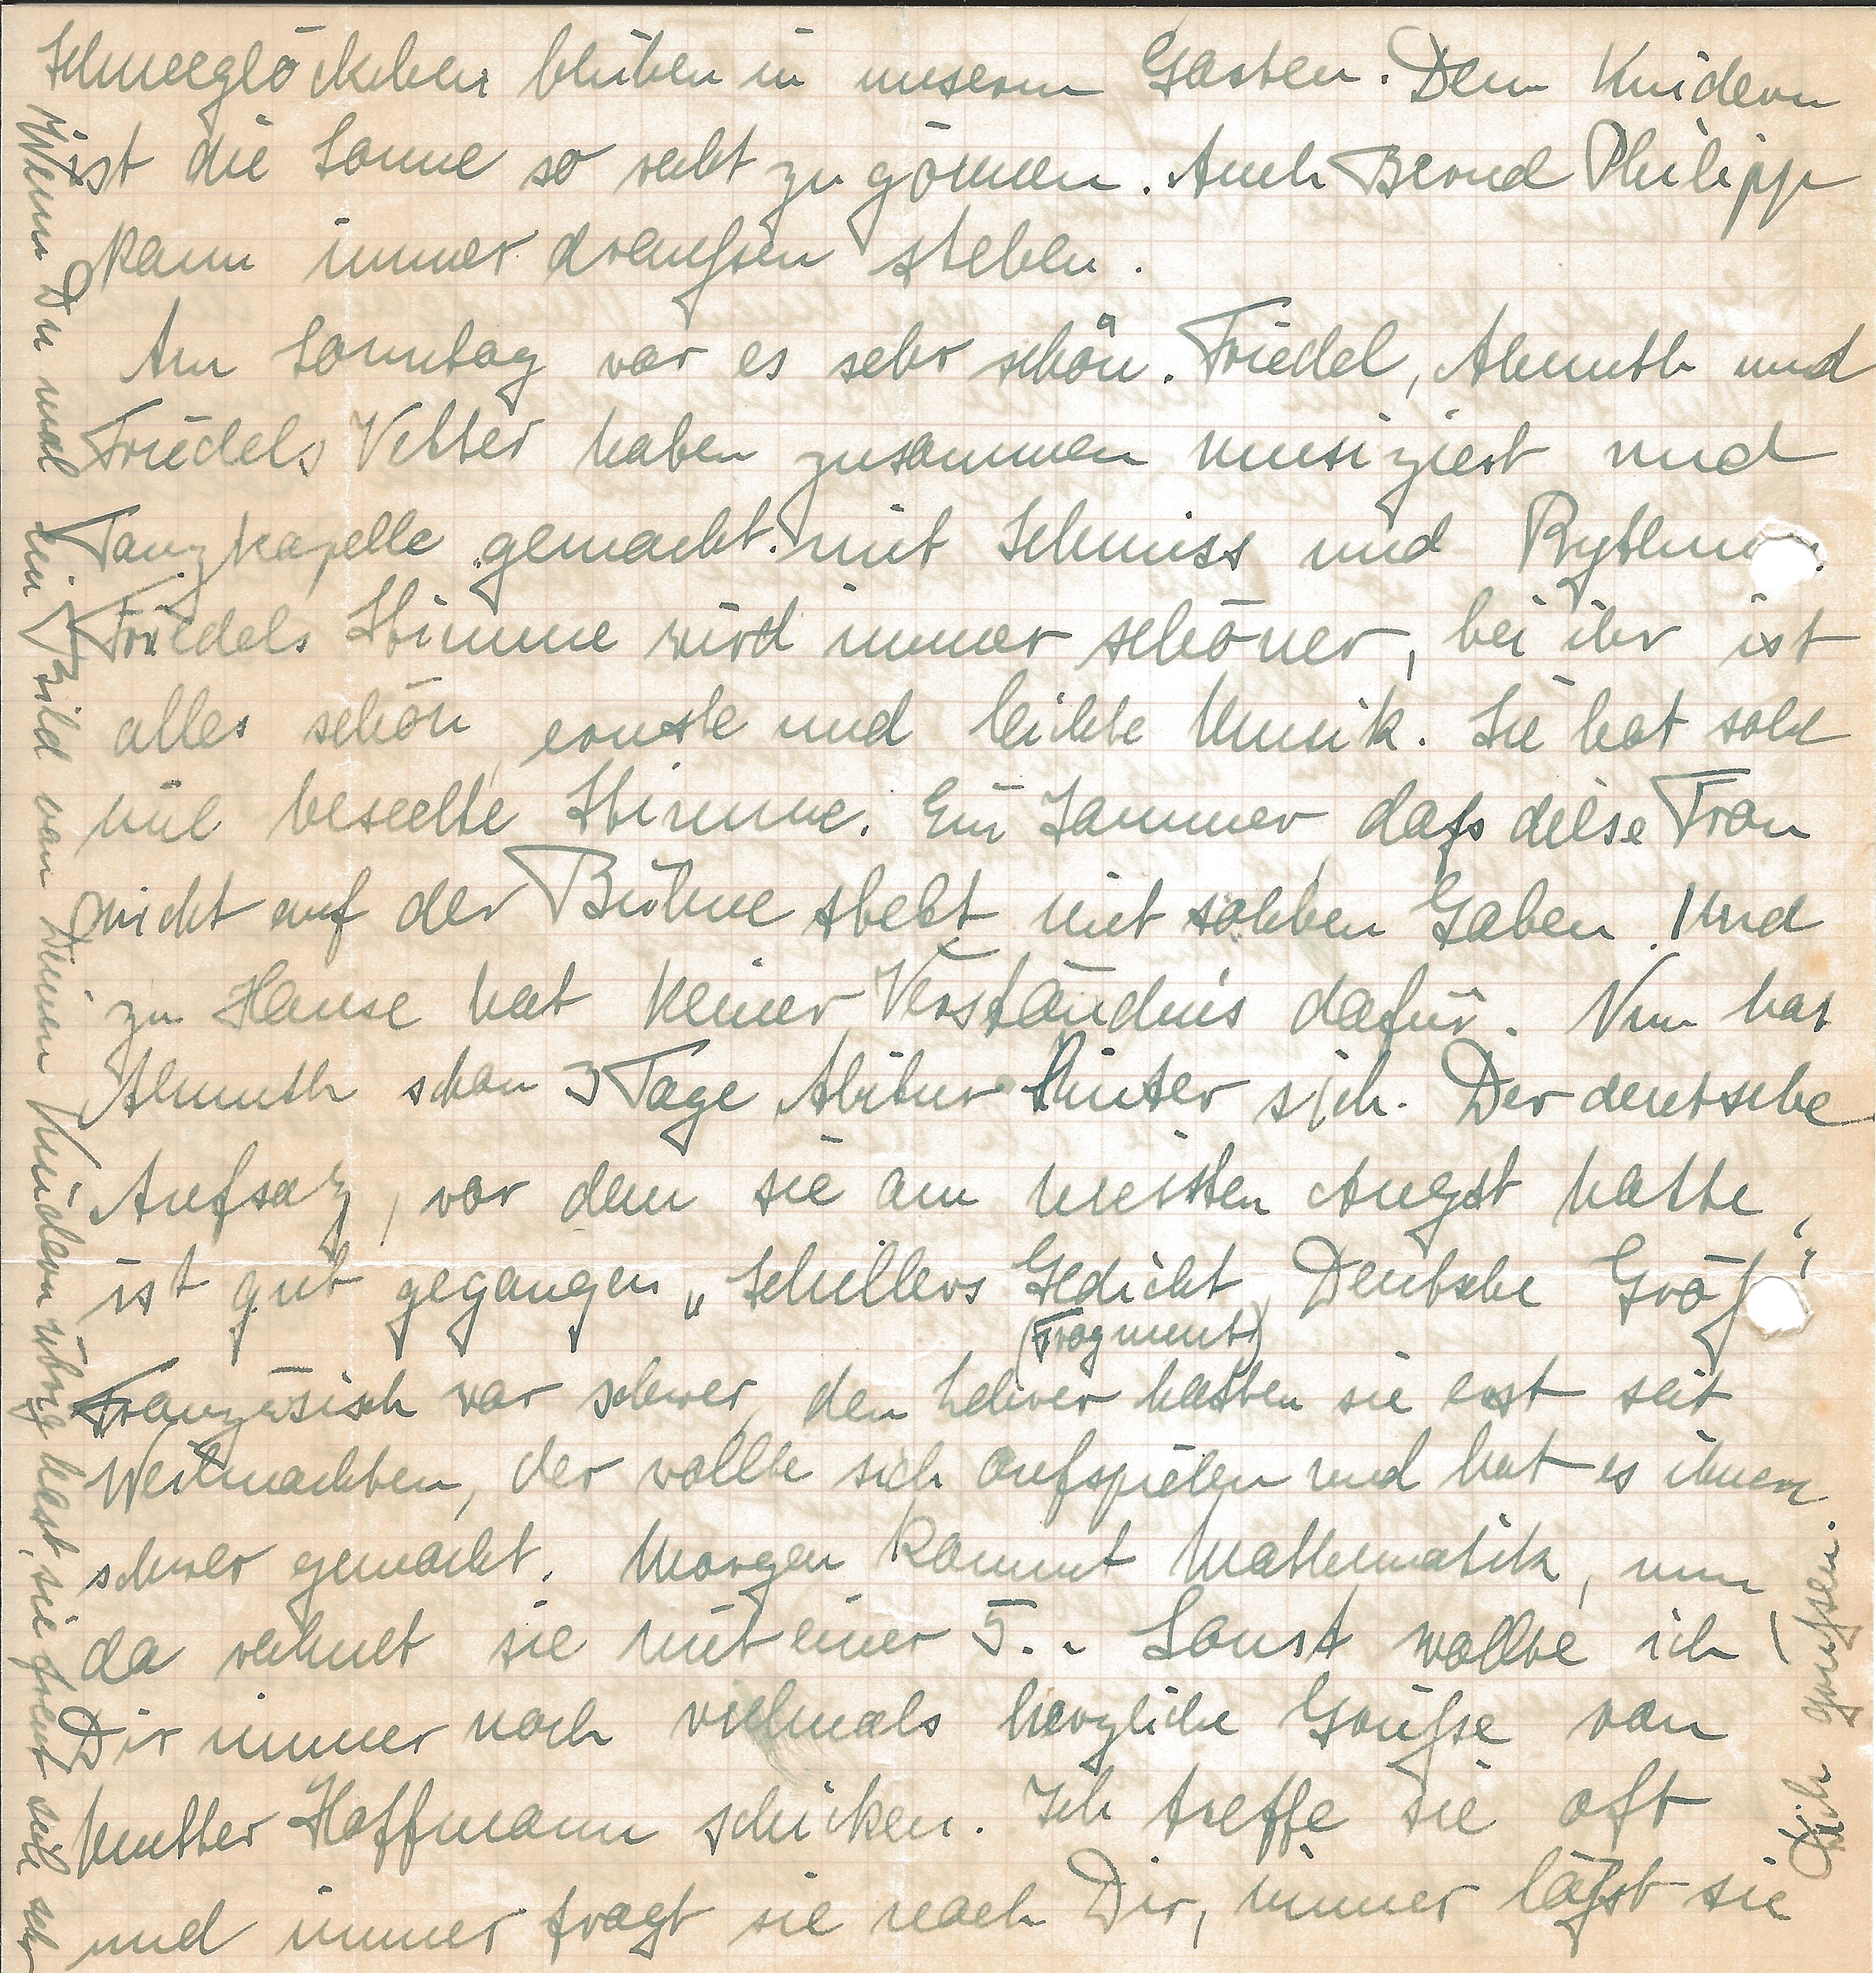 Schneeglöckchen blühen in unserm Garten. Den Kindern
ist die Sonne so recht zu gönnen. Auch Bernd Philipp
kann immer draußen stehen.
Am Sonntag war es sehr schön. Friedel, Almuth und
Friedels Vetter haben zusammen musiziert und
Tanzkapelle gemacht mit Schmiss und Rythm
Friedels Stimme wird immer schöner, bei ihr ist
alles schön, ernste und leichte Musik. Sie hat solch
beseelte Stimme. Ein Jammer, daß diese Frau
nicht auf der Bühne steht mit solchen Gaben. Und
zu Hause hat keiner Verständnis dafür. Nun hat
Almuth schon 3 Tage Abitur hinter sich. Der deutsche
Aufsaz, vor dem sie am meisten Angst hatte,
ist gut gegangen „Schillers Gedicht, Deutsche Größ"
(Fragment)
Französisch war schwer, den Lehrer hatten sie erst seit
Weihnachten, der wollte sich aufspielen und hat es ihnen
schwer gemacht. Morgen kommt Mathematik, nun
da rechnet sie mit einer 5.. Sonst wollte ich
Dir immer noch vielmals herzliche Grüße von
Mutter Hoffmann schicken. Ich treffe sie oft
und immer fragt sie nach Dir, immer läßt sie
Dich grüßen.
Wenn Du mal ein Bild von Deinen Kindern übrig hast, sie freut sich sehr